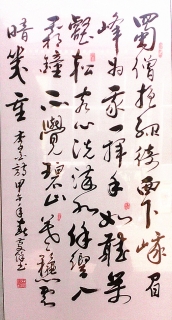 蜀僧抱綠綺西下峨眉
峰為我一揮手如聽萬
壑松客心洗流水餘響入
霜鐘不覺碧山暮秋雲
暗幾重 李白詩 甲子年春